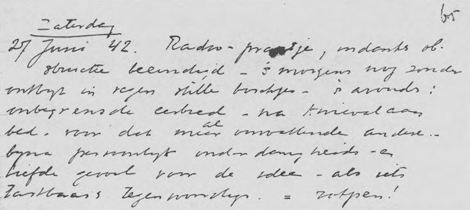 65
Zaterdag
27 Juni 42. Radio-praatje, ondanks ob-
structie beëindigd - 's morgens nog zonder
ontbijt in regen stille boschjes - 's avonds:
onbegrensde eerbied - na knieval aan
bed - voor dat al omvattende andere -
bijna persoonlijk onderdanigheids- en
liefde gevoel voor de idee - als iets
tastbaars tegenwoordigs. =